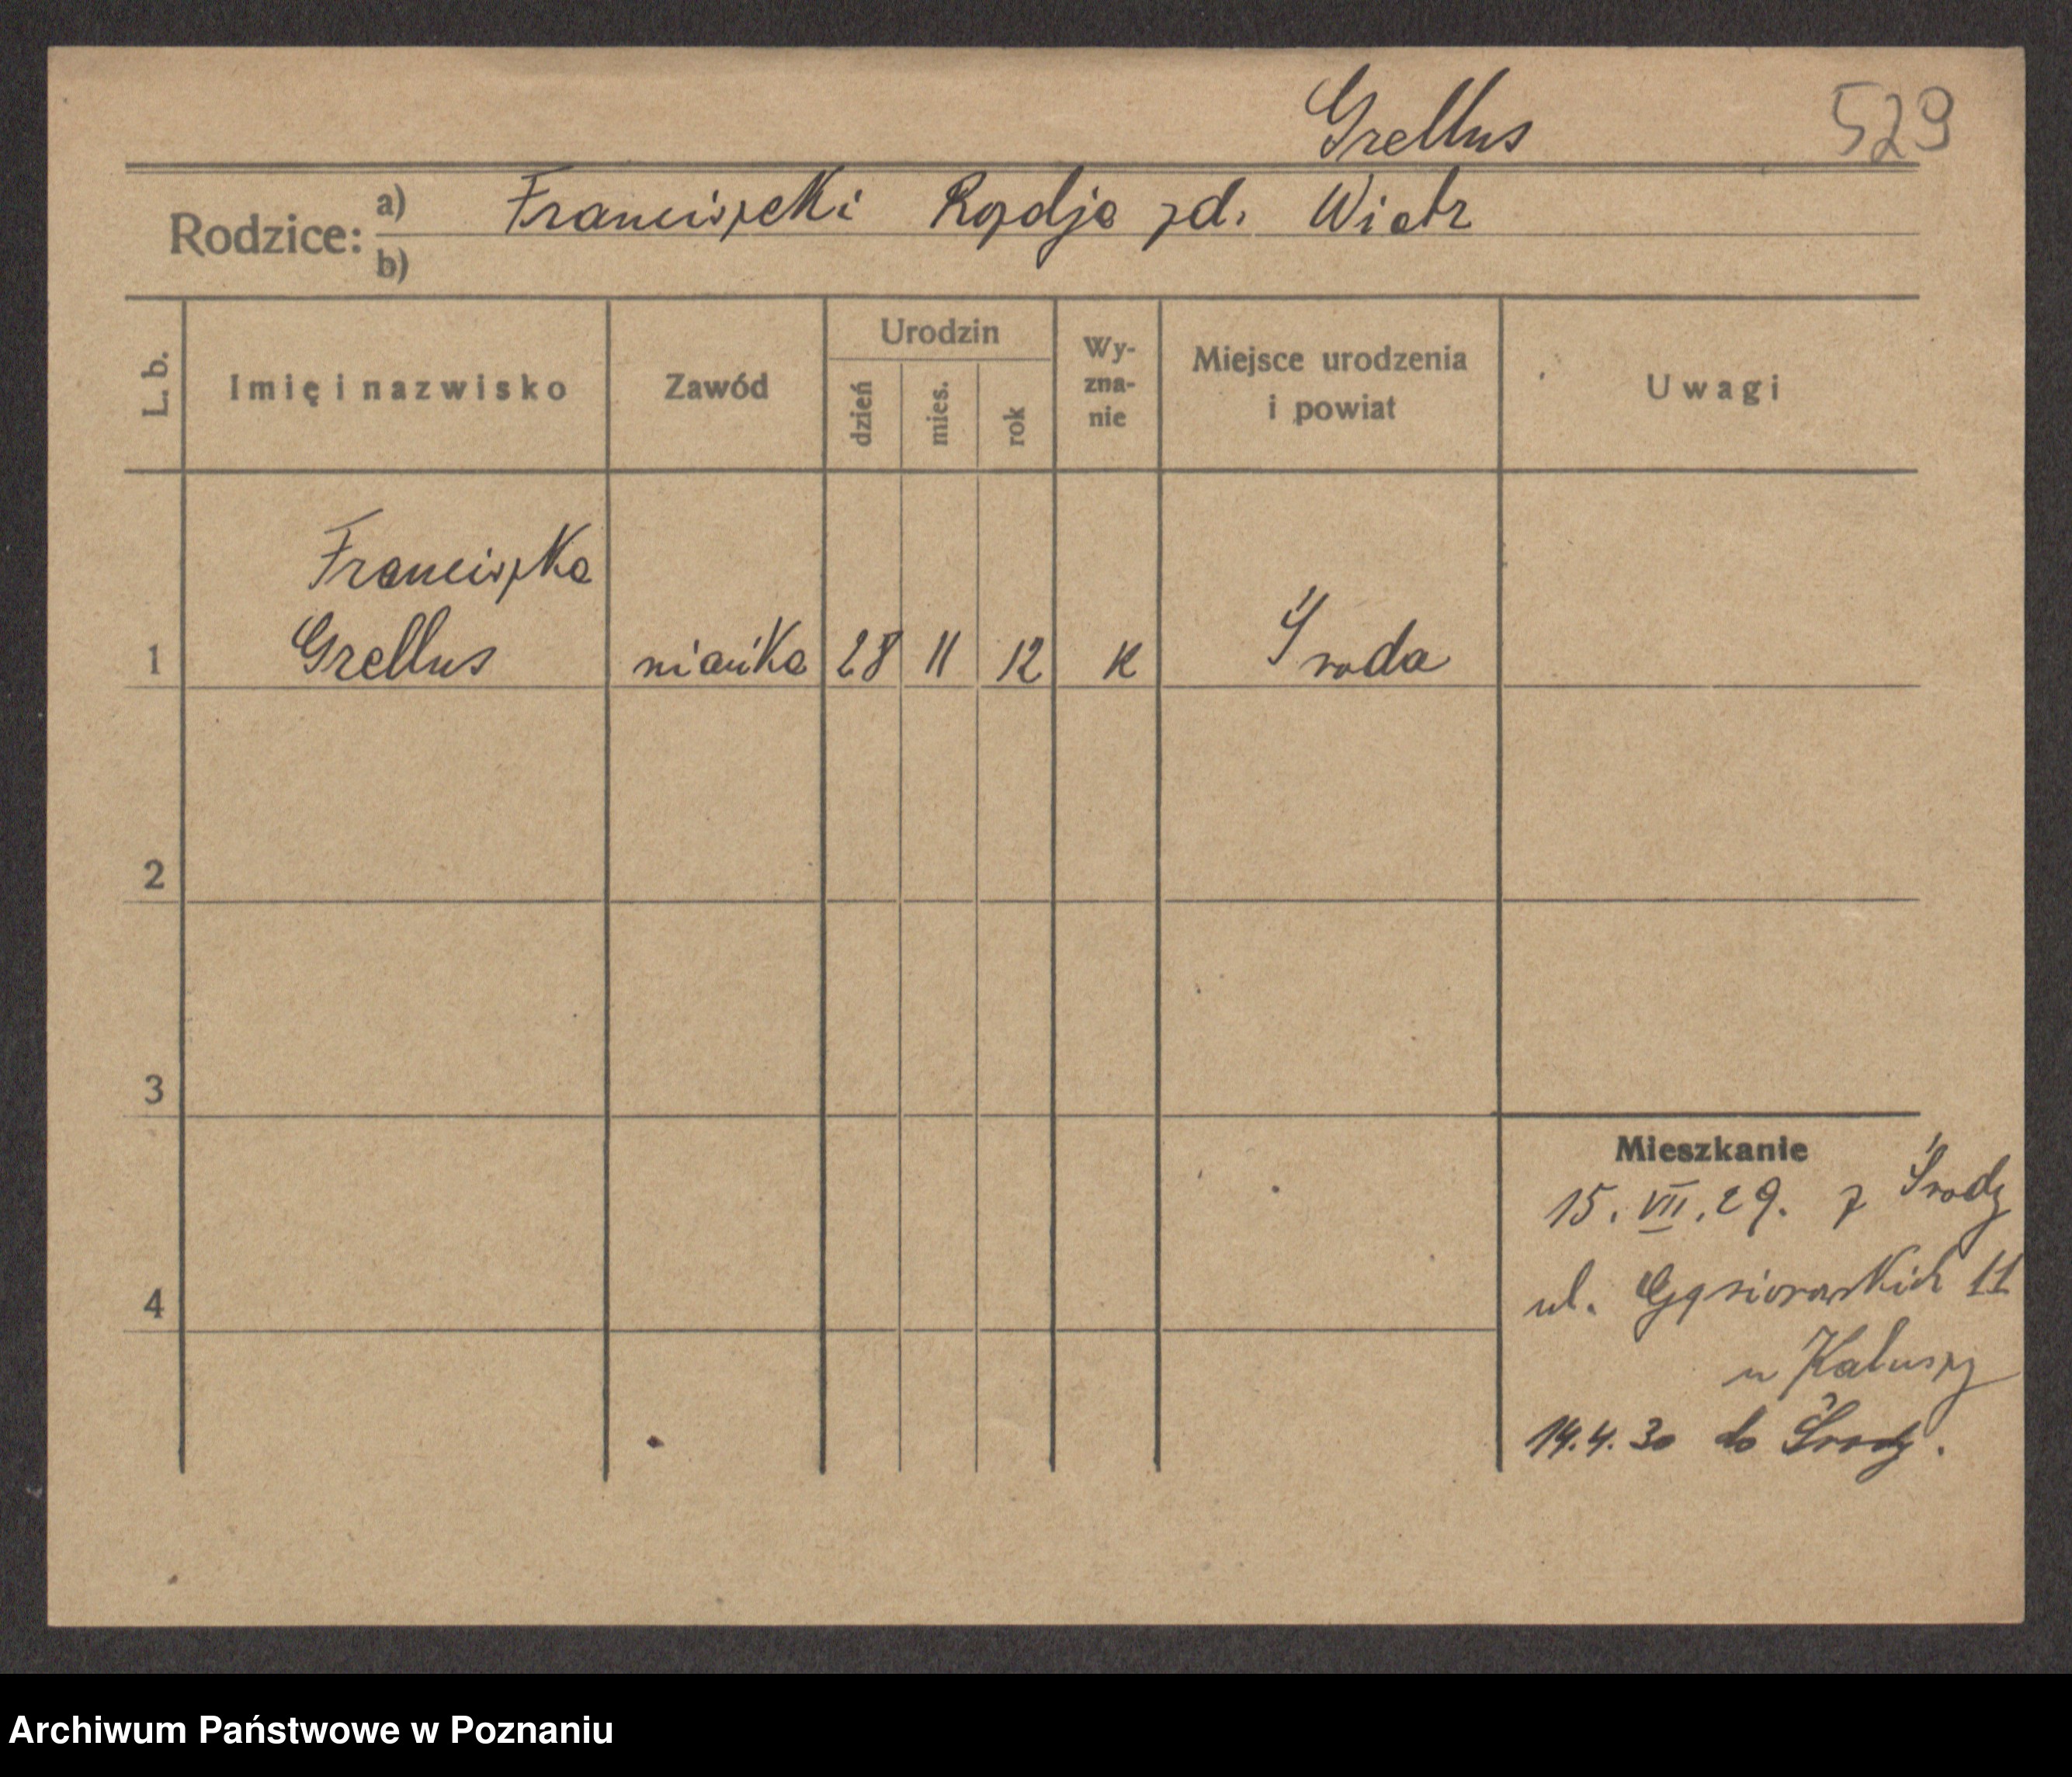 Grellus 529
Rodzice: a) Franciszek i Rozalja zd. Wiatr
b)
L. b. Imię i nazwisko Zawód Urodzin dzień mies. rok Wy-zna-nie Miejsce urodzenia i powiat Uwagi
Franciszka
1 Grellus niańka 28 11 12 k Środa
2
3
Mieszkanie
15. VII. 29. z Środy
4 ul. Gąsiorowskich 11
u Kałuszy
14.4.30 do Środy.
Archiwum Państwowe w Poznaniu